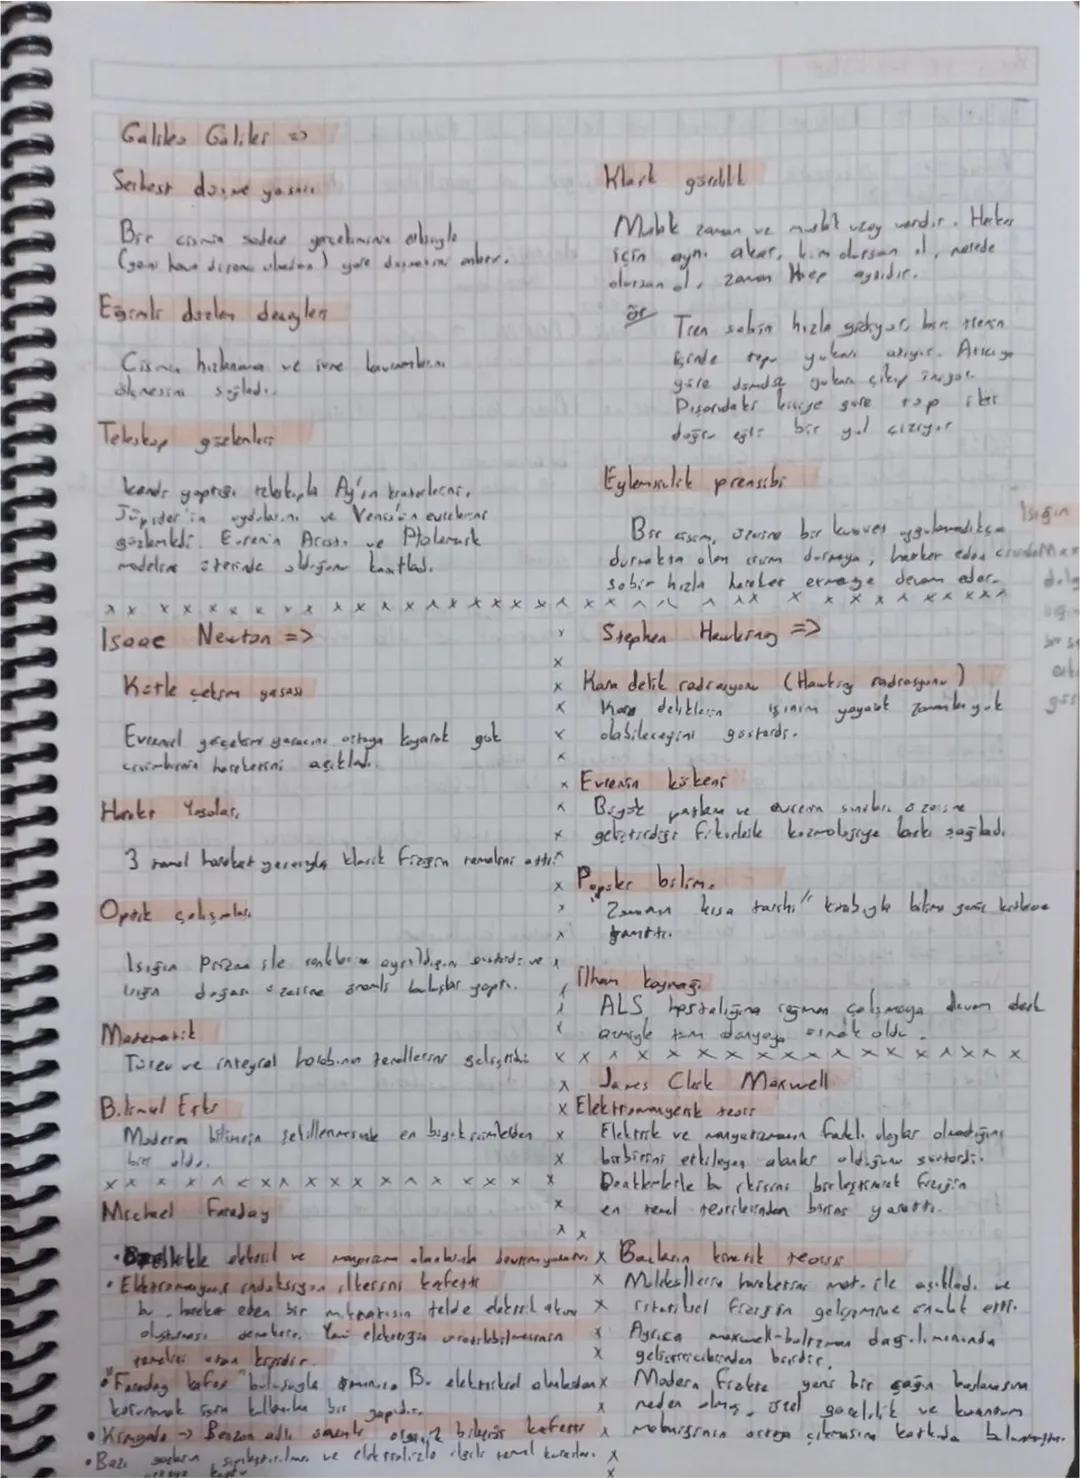 Galileo Galilei =>
Serbest düşme yasası
Bir cismin sadece yerçekiminin etkisiyle
(yani hava direnci olmadan) yere düşmesini
Eğimli düzlem deneyleri
Cismin hızlanma ve ivme kavramlarını
ölçmesini sağladı.
Teleskop gözlemleri
kendi yaptığı teleskopla Ay'ın kraterlerini,
Jüpiter'in uydularını ve Venüs'ün evrelerini
gözlemledi. Evrenin Aristo ve
modelinin olduğunu kanıtladı.
Klasik görelilik
Mutlak zaman ve mutlak uzay vardır. Herkes
için aynı akar, kim olursan ol, nerede
olursan ol, zaman hep aynıdır.
ör
Tren sabit hızla gidiyor, biri trenin
içinde topu yukarı atıyor. Atıcıya
göre dümdüz yukarı çıkıp iniyor.
Dışarıdaki kişiye göre top
doğru eğri bir yol çiziyor
Eylemsizlik prensibi
Bir cisim, üzerine bir kuvvet uygulanmadıkça
durmakta olan cisim durmaya, hareket eden
sabit hızla hareket etmeye devam eder.
Işığın
Isaac Newton =>
Kütle çekim yasası
Evrensel yerçekimi yasasını ortaya koyarak gök
cisimlerinin hareketini açıkladı.
Hareket Yasaları
3 temel hareket yasasıyla klasik fiziğin temelini attı.
Optik çalışmaları
Işığın Prizma ile renklerine ayrıldığını gösterdi ve
ışığın doğası üzerine önemli buluşlar yaptı.
Matematik
Türev ve integral hesabının temellerini geliştirdi
Bilimsel Etki
Modern bilimin şekillenmesinde en büyük isimlerden
biri oldu.
Stephen Hawking =>
Kara delik radrasyonu (Hawking radrasyonu)
Kara deliklerin ışınım yayarak zamanla yok
olabileceğini gösterdi.
Evrenin kökeni
Büyük patlama ve evrenin sınırları üzerine
geliştirdiği fikirlerle kozmolojiye katkı sağladı.
Popüler bilim
"Zamanın kısa tarihi" kitabıyla bilimi geniş kitlelere
tanıttı.
İlham kaynağı
ALS hastalığına rağmen çalışmaya devam
azmiyle tüm dünyaya örnek oldu.
James Clerk Maxwell
Elektromanyetik teori
Elektrik ve manyetizmanın farklı olaylar olmadığını
birbirini etkileyen alanlar olduğunu gösterdi.
Denklemlerle bu ikisini birleştirerek fiziğin
en temel teorilerinden birini yarattı.
Gazların kinetik teorisi
Moleküllerin hareketini mat. ile açıkladı ve
istatiksel fiziğin gelişimine öncülük etti.
Ayrıca maxwell-boltzman dağılımınında
geliştiricilerinden biridir.
Modern fizikte yeni bir çağın başlamasına
neden olmuş, özel görelilik ve kuantum
ortaya çıkmasına katkıda bulunmuştur.
Michael Faraday
• elektrik ve manyetizma alanlarında
• Elektromanyetik indüksiyon ilkesini keşfetti
bu, hareket eden bir mıknatısın telde elektrik akımı
oluşturması demektir. Yani elektriğin üretilebilmesinin
temelini atan kişidir.
• "Faraday kafesi" buluşuyla Bu elektriksel alanlardan
korunmak için kullanılan bir yapıdır.
• Kimyada -> Benzen adlı önemli organik bileşiği keşfetti
• Bazı gazların sıvılaştırılması ve elektrolizle ilgili temel kuralları